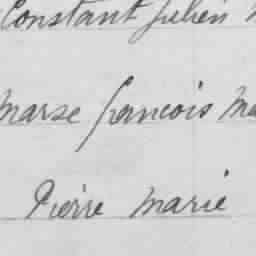 Constant Julien
Marse francois Ma
Pierre Marie